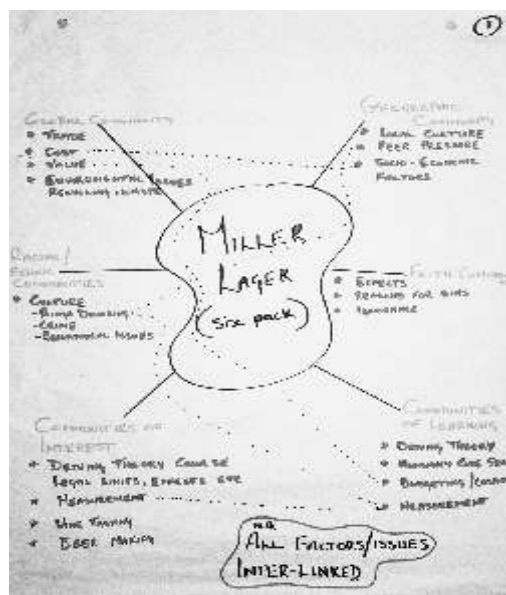 1
GLOBAL COMMUNITY
TRADE
COST
VALUE
ENVIRONMENTAL ISSUES
GEOGRAPHIC COMMUNITY
LOCAL CULTURE
PEER PRESSURE
SOCIO-ECONOMIC
FACTORS
MILLER
LAGER
(SIX PACK)
RACIAL/
ETHNIC
COMMUNITIES
CULTURE
-BINGE DRINKING
-CRIME
ISSUES
FAITH
EFFECTS
REASONS FOR
IGNORANCE
COMMUNITIES OF
INTEREST
DRIVING THEORY COURSE
LEGAL LIMITS, EFFECTS ETC
MEASUREMENT
WINE TASTING
BEER MAKING
COMMUNITIES
OF LEARNING
DRIVING THEORY
BUDGETING/
MEASUREMENT
N.B.
ALL FACTORS/ISSUES
INTER-LINKED